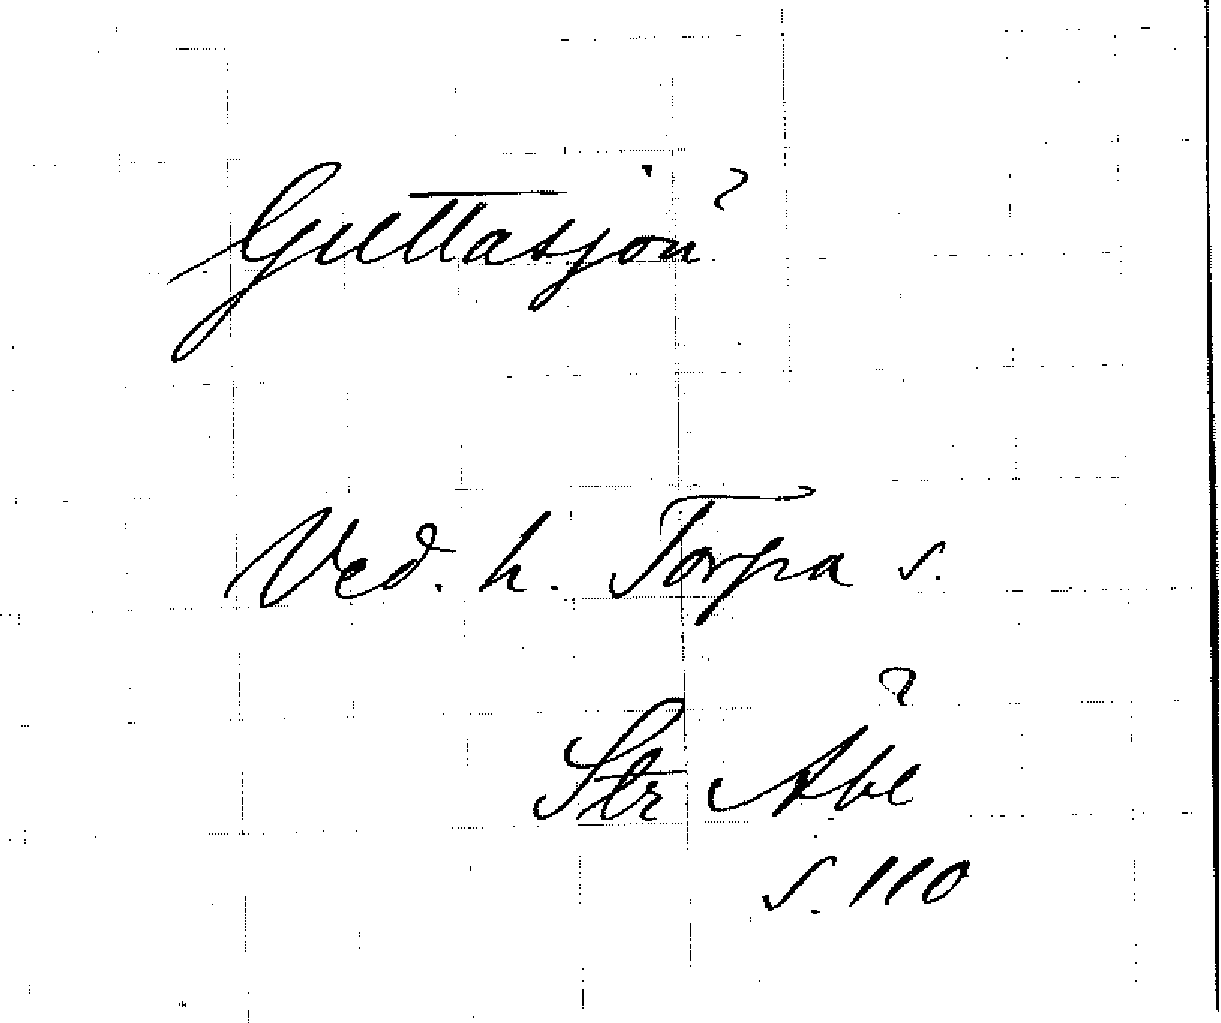 Guttasjön
Ved. h. Torpa s.
Str Åbe
s. 110